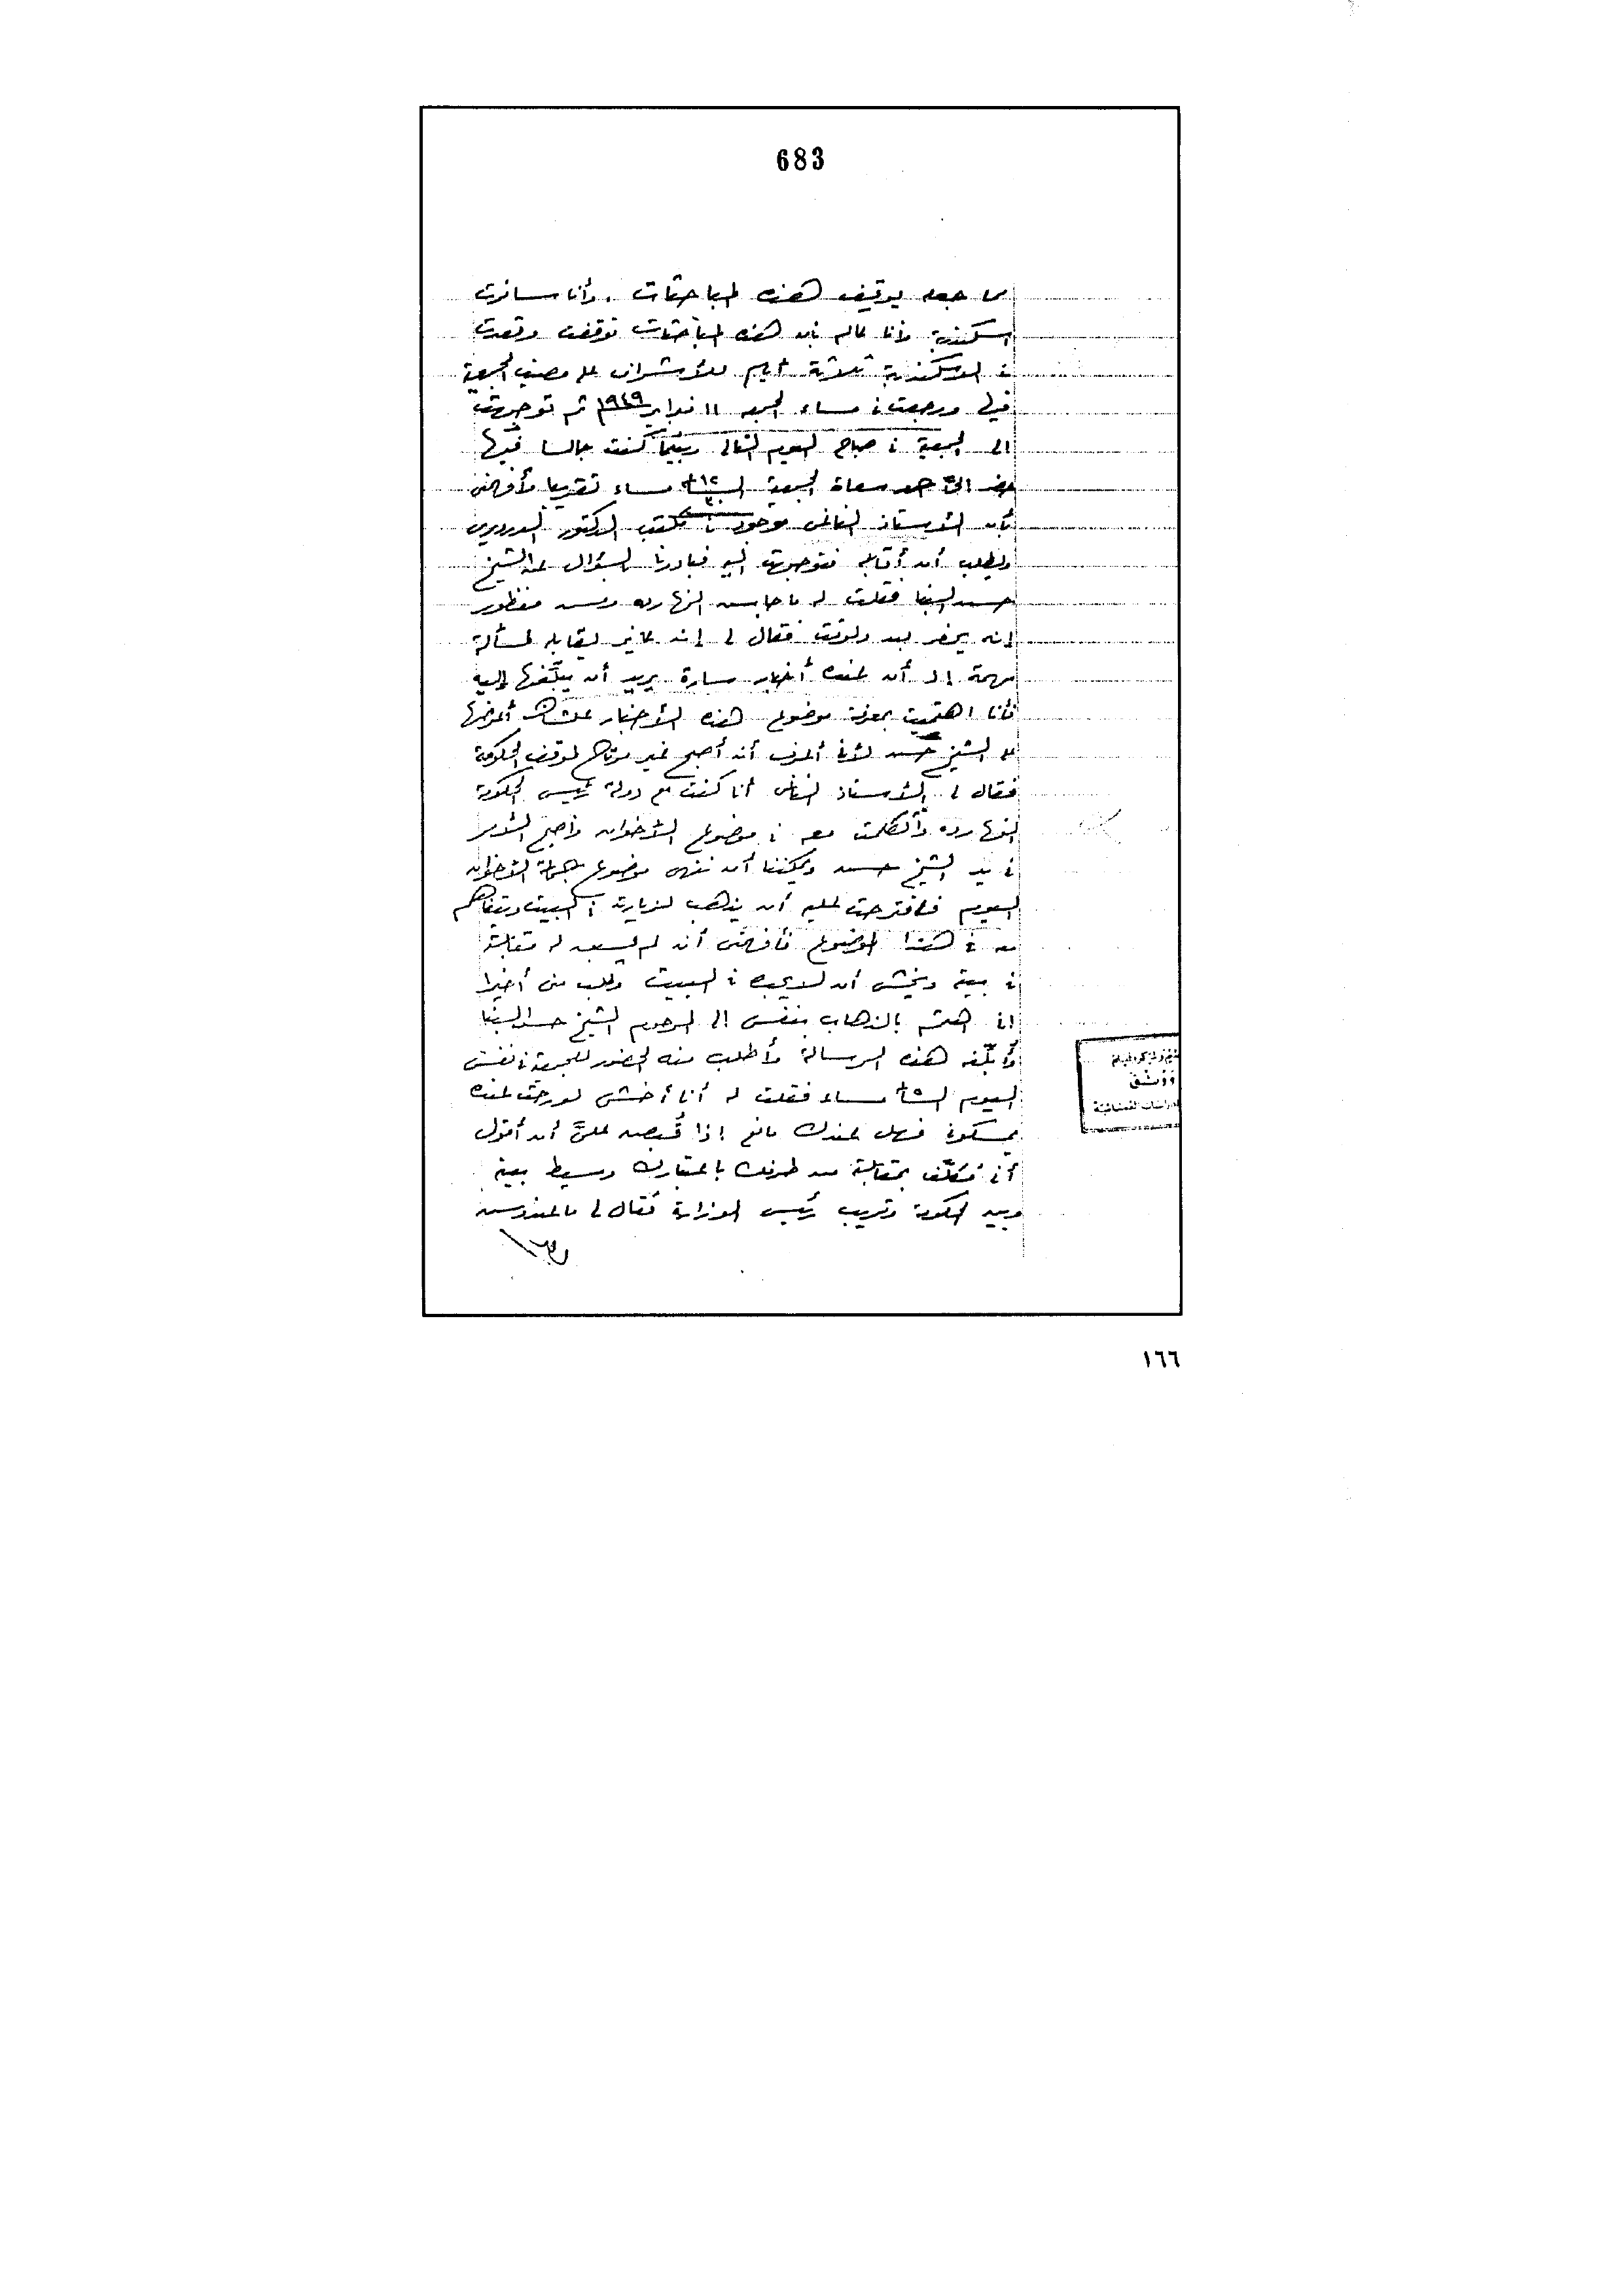 683
مما جعله يوقف هذه المباحثات . وأنا سافرت
اسكندرية وأنا عالم بأن هذه المباحثات توقفت وقعدت
في الاسكندرية ثلاثة أيام للأشراف على مصيف الجمعية
فيها ورجعت في مساء الجمعه ١١ فبراير ١٩٤٩ ثم توجهت
الى الجمعية في صباح اليوم التالى وبينما كنت جالسا فيها
حضر الىّ أحد سعاة الجمعية مساء تقريبا وأفهمنى
بأن الأستاذ الناغى موجود في مكتب الدكتور
ويطلب أن أقابله فتوجهت اليه فبادرنا بالسؤال عن الشيخ
حسن البنا فقلت له ما جاش النهارده ومش منظور
إنه يحضر بعد دلوقت فقال لى إنه عايز يقابله لمسألة
مهمة إلا أن عنده أخبار سارة يريد أن يبلّغها إليه
فأنا اهتميت بمعرفة موضوع هذه الأخبار علشان أعرضها
على الشيخ حسن لأنى أعرف أنه أصبح غير مرتاح لموقف الحكومة
فقال لى الأستاذ الناغى أنا كنت مع دولة رئيس الحكومة
النهارده وأتكلمت معه في موضوع الأخوان وأصبح الأمر
في يد الشيخ حسن ويمكننا أن ننهى موضوع الأخوان
اليوم فاقترحت عليه أن يذهب لزيارته في البيت ويتفاهم
معه في هذا الموضوع فأفهمنى أنه لم يسبق له مقابلته
في بيته ويخشى أن لا يجده في البيت وطلب منى أخيرا
انى أهتم بالذهاب بنفسى إلى المرحوم الشيخ حسن البنا
وأبلّغه هذه الرسالة وأطلب منه الحضور للجمعية في نفس
اليوم الساعة ٥ مساء فقلت له أنا أخشى لو رحت عنده
يمسكونى فهل عندك مانع إذا قُبض علىّ أن أقول
أنى مُكلّف بمقابلته من طرفك باعتبارك وسيط بينه
وبين الحكومة وقريب رئيس الوزارة فقال لى ما عنديش
١٦٦